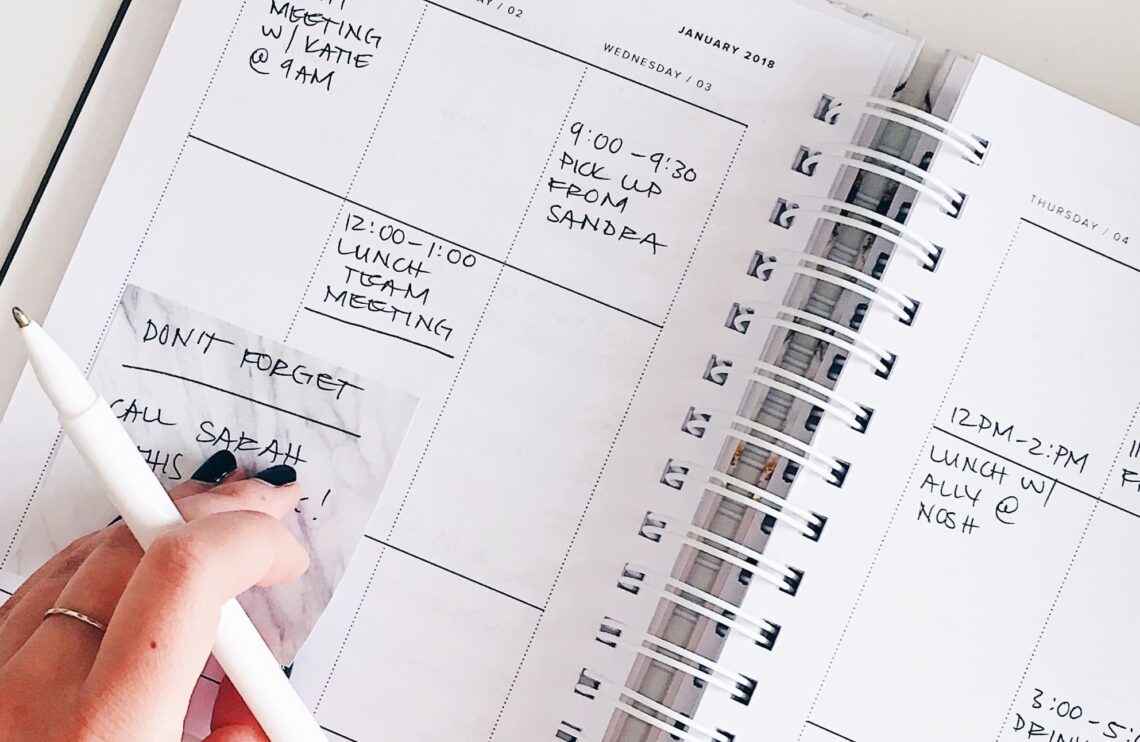 / 02
JANUARY 2018
WEDNESDAY / 03
MEETING
W/ KATIE
@ 9AM
12:00-1:00
LUNCH
TEAM
MEETING
9:00-9:30
PICK UP
FROM
SANDRA
DON'T FORGET
CALL SARAH
THIS
!
THURSDAY / 04
12PM-2:PM
LUNCH W/
ALLY @
NOSH
3:00-5: